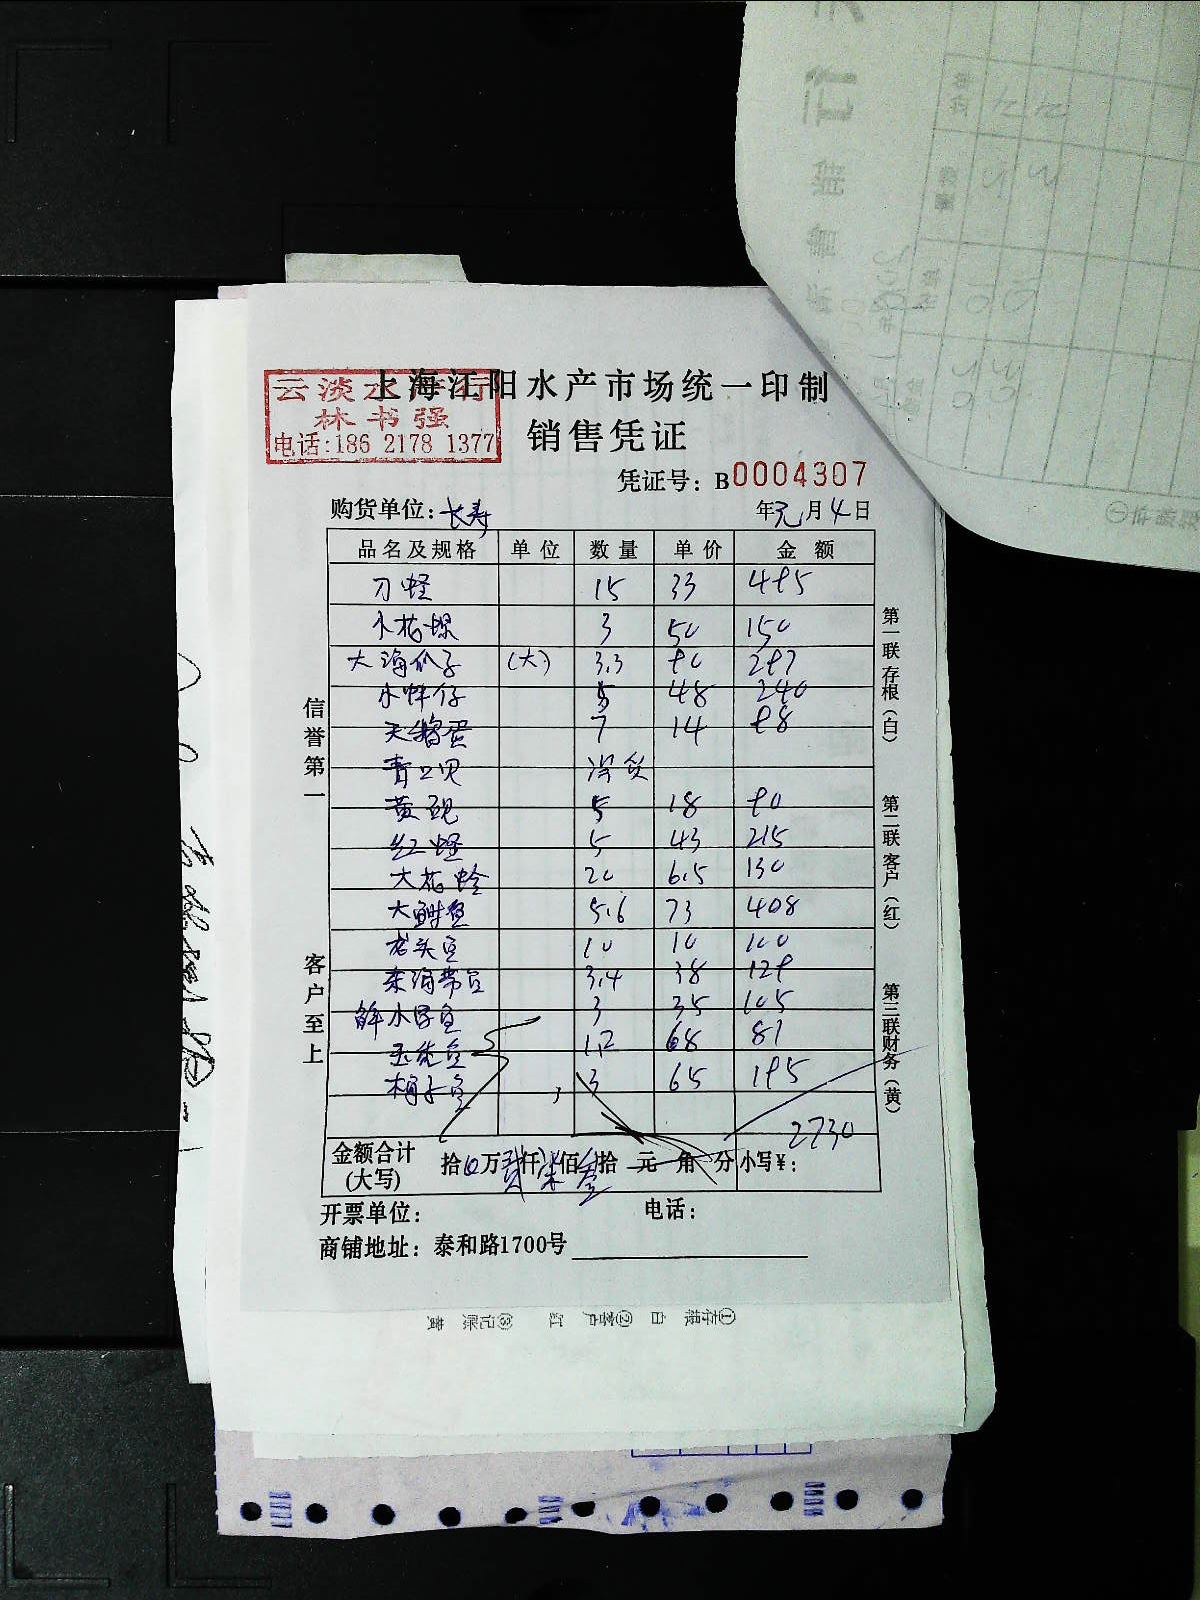 上海江阳水产市场统一印制
云淡水产行
林书强
电话:186 2178 1377
销售凭证
凭证号: B0004307
购货单位: 长寿 年元月4日
品名及规格 单位 数量 单价 金额
刀蛏 15 33 495
小花螺 3 50 150
大海瓜子 (大) 3.3 90 297
小蚌仔 5 48 240
天鹅蛋 7 14 98
青口贝
黄蚬 5 18 90
红蛏 5 43 215
大花蛤 20 6.5 130
大鮒鱼 5.6 73 408
老头鱼 10 10 100
海带鱼 3.4 38 129
小字鱼 3 35 105
玉秃鱼 1.2 68 81
梅子鱼 3 65 195
2730
金额合计(大写) 拾万贰仟柒佰叁拾元角分 小写¥:
开票单位: 电话:
商铺地址: 泰和路1700号
信誉第一
客户至上
第一联存根(白)
第二联客户(红)
第三联财务(黄)
①存根 白 ②客户 红 ③记账 黄